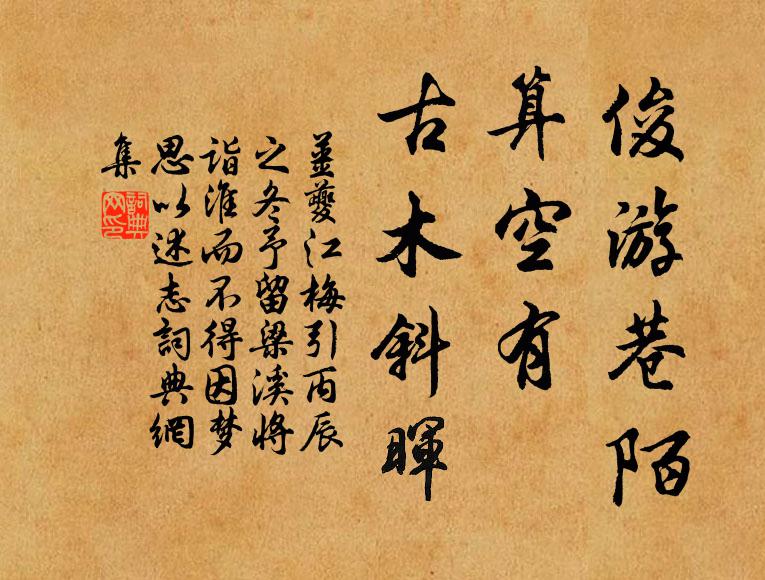 俊游巷陌
算空有
古木斜暉
姜夔江梅引丙辰
之冬予留梁溪將
詣淮而不得因梦
思以述志詞典網
集
詞典網印